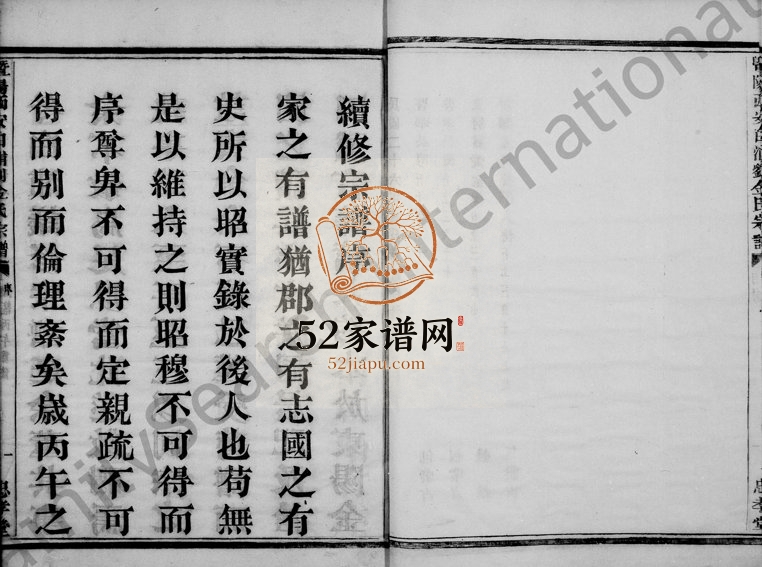 續修宗譜序
家之有譜猶郡之有志國之有
史所以昭實錄於後人也苟無
是以維持之則昭穆不可得而
序尊卑不可得而定親疏不可
得而别而倫理紊矣歲丙午之
金氏宗譜
一
忠孝堂
忠孝堂
52家谱网
52jiapu.com
familysearch international